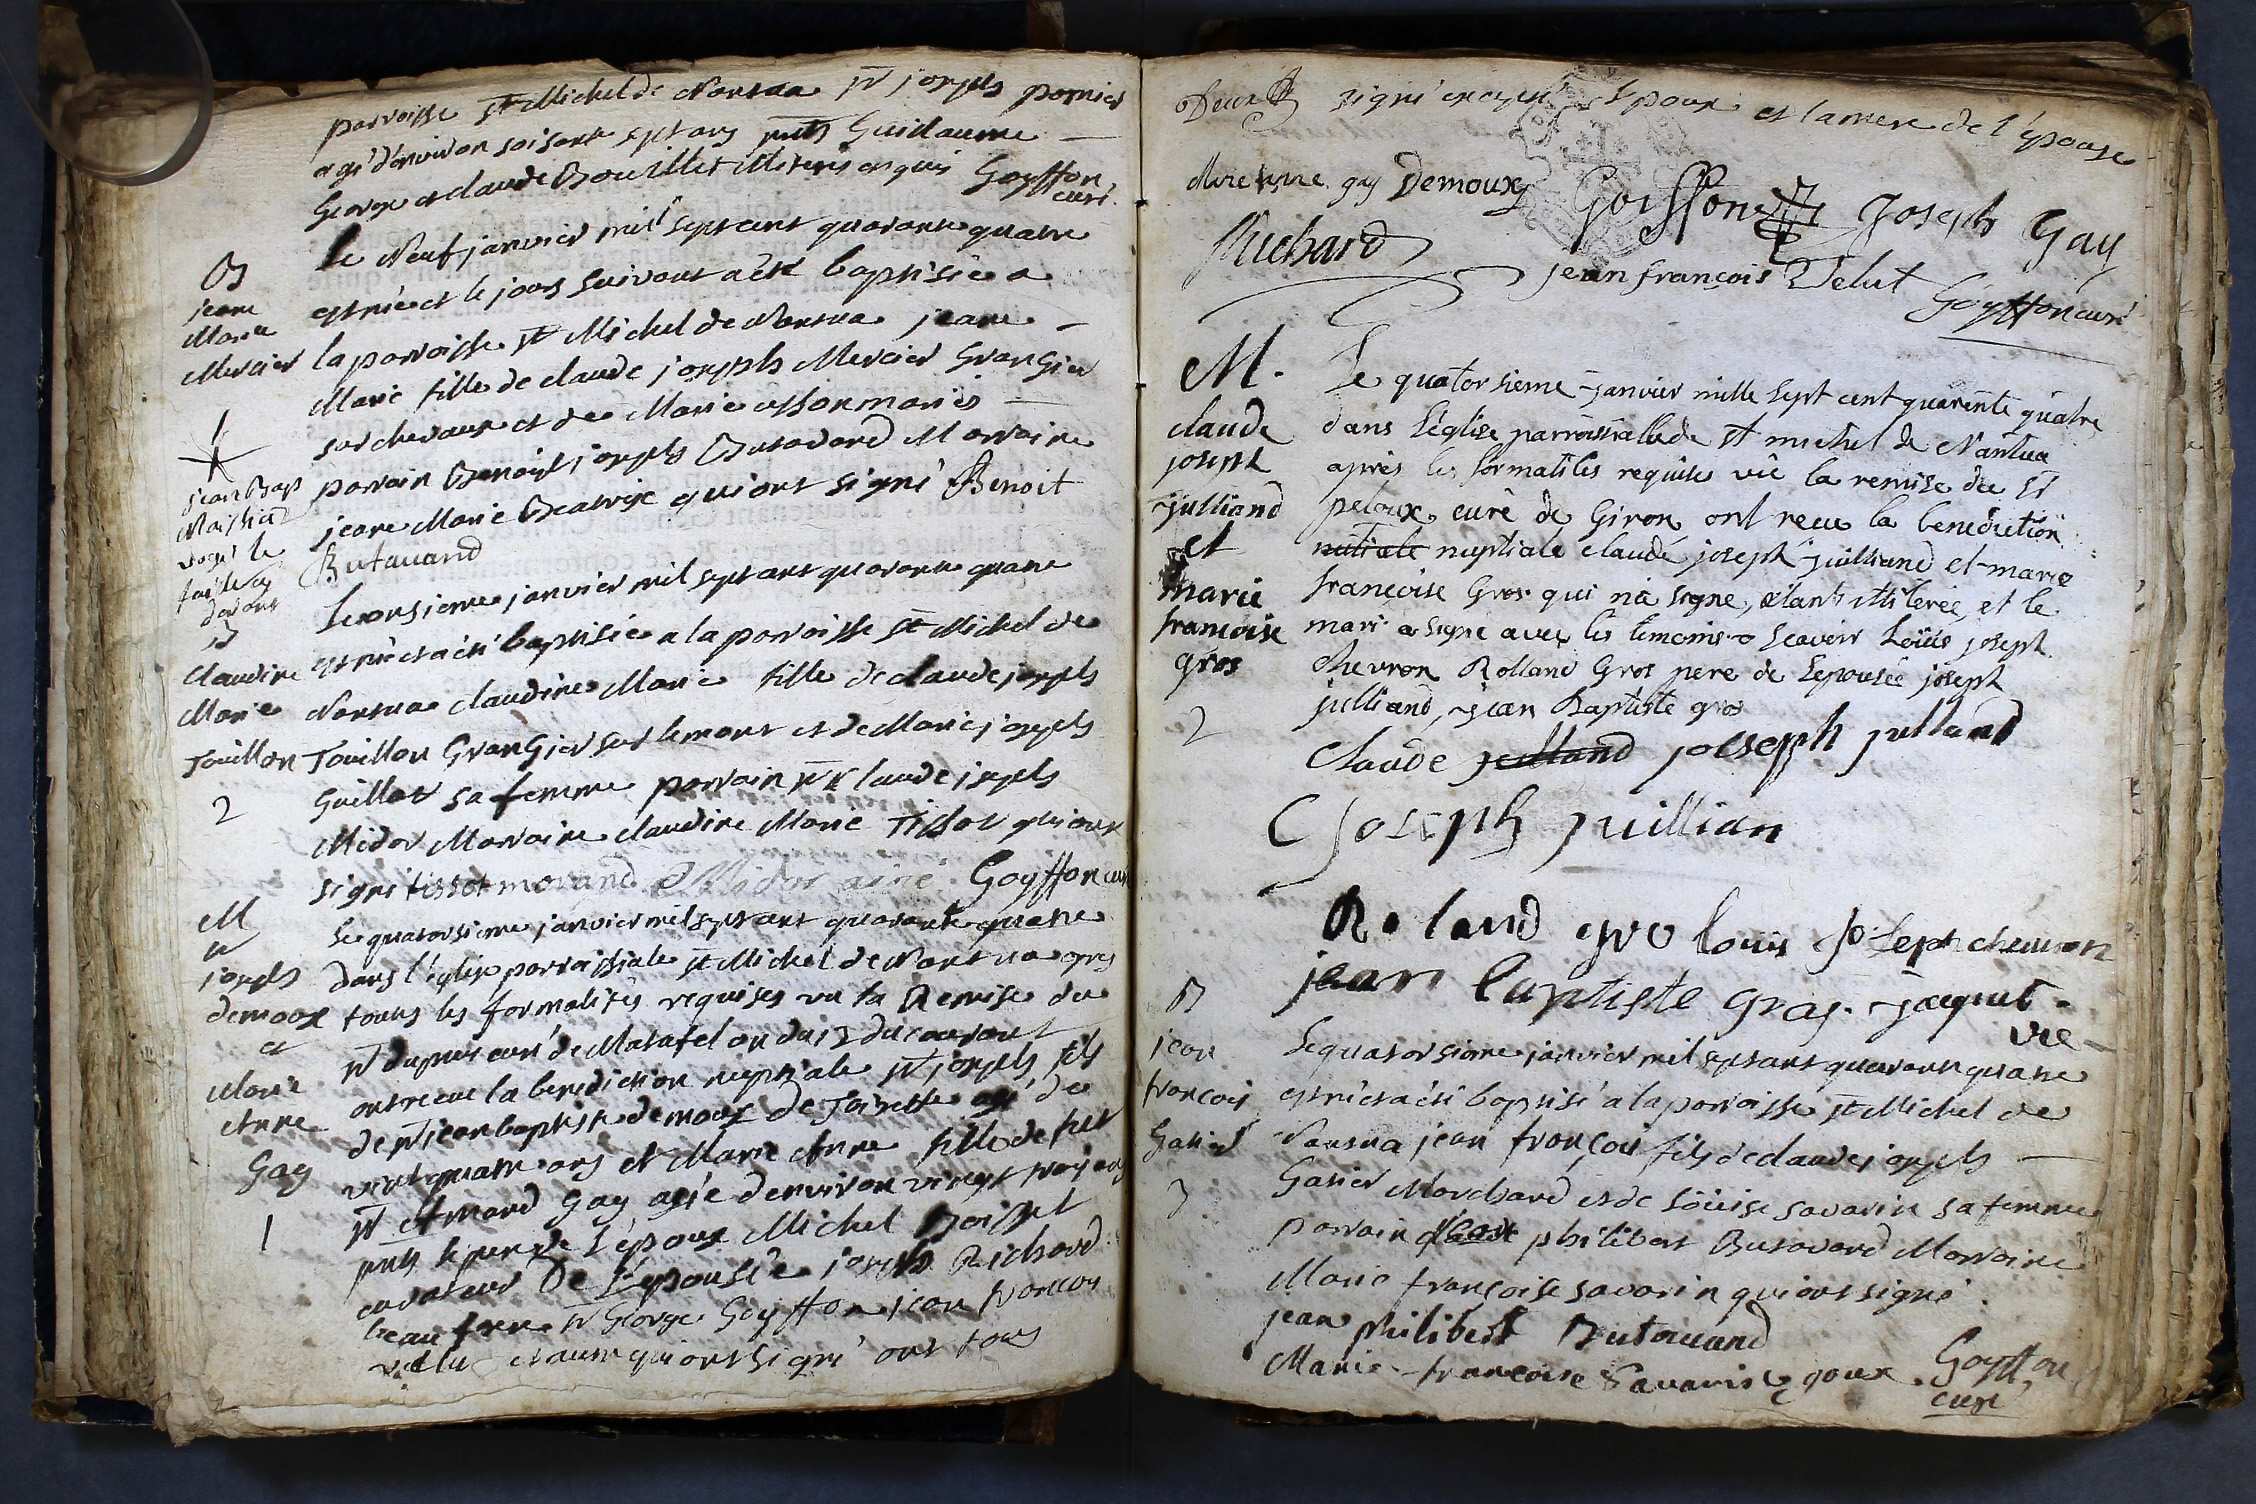 parroisse st Michel de Nantua sr joseph pornier
agé d'environ soisante sept ans pnts Guillaume
George et claude Bouillet illiterés enquis Goyffon
curé
B
jeane
Marie
Mercier
le Neuf janvier mil sept cent quarante quatre
est née et le jours suivant a été baptisée a
la parroisse st Michel de Nantua jeane
Marie fille de claude joseph Mercier Grangier
sur chevaux et de Marie mariés
parrain Benoist joseph Butavand Marraine
jeane Marie Beatrix qui ont signé Benoit
Butavand
jean Bap
le
Le onsieme janvier mil sept cent quarante quatre
B
Claudine
Marie
Touillon
2
est née et a été baptisée a la parroisse st Michel de
Nantua claudine Marie fille de claude joseph
Touillon Grangier sur le mont et de Marie joseph
Guillot sa femme parrain sr claude joseph
Midor Marraine claudine Marie Tissot qui ont
signé tissot morand Midor ainé Goyffon curé
M
sr
joseph
demoux
et
Marie
Anne
Gay
1
Le quatorsieme janvier mil sept cent quarante quatre
dans l'église parroissiale st Michel de Nantua apres
toutes les formalités requises vu la Remise du
sr dupuis curé de Matafelon du 13 du courant
ont receue la benediction nuptiale sr joseph fils
de sr jean baptiste demoux de Toirette agé de
vint quatre ans et Marie Anne fille de feu
sr Amard Gay agée d'environ vingt trois ans
pnts le pere de l'époux Michel
curateur de L'épousée joseph Richard
beau frere sr George Goyffon jean francois
velut et aume qui ont signé ont tous
signé exepté l'époux et la mere de l'épouse
Marie Anne gay Demoux Goiffon Joseph Gay
Richard jean françois Velut
Goyffon curé
M.
claude
joseph
julliand
et
marie
francoise
gros
2
Le quatorsieme janvier mille sept cent quarente quatre
dans l'église parroissialle de st michel de Nantua
aprés les formalités requises vûe la remise du sr
peloux curé de Giron, ont reçue la benediction
nutiale nuptiale claude joseph juilliand et marie
françoise Gros qui n'a signé, étant illiterée, et le
mari a signé avec les temoins scavoir Loüis joseph
chevron Rolland Gros pere de Lepousée joseph
julliand, jean Baptiste gros
Claude julland joseph julland
Joseph juillian
Roland gro louis joseph chevron
jean baptiste gros. jaquet
vic
B
jean
francois
Ganier
3
Le quatorsieme janvier mil sept cent quarante quatre
est né et a été baptisé a la parroisse st Michel de
Nantua jean françois fils de claude joseph
Ganier Marchand et de Loüise savarin sa femme
parrain jean philibert Butavand Marraine
Marie françoise savarin qui ont signé
jean philibert Butavand
Marie françoise Savarin goux Goyffon
curé